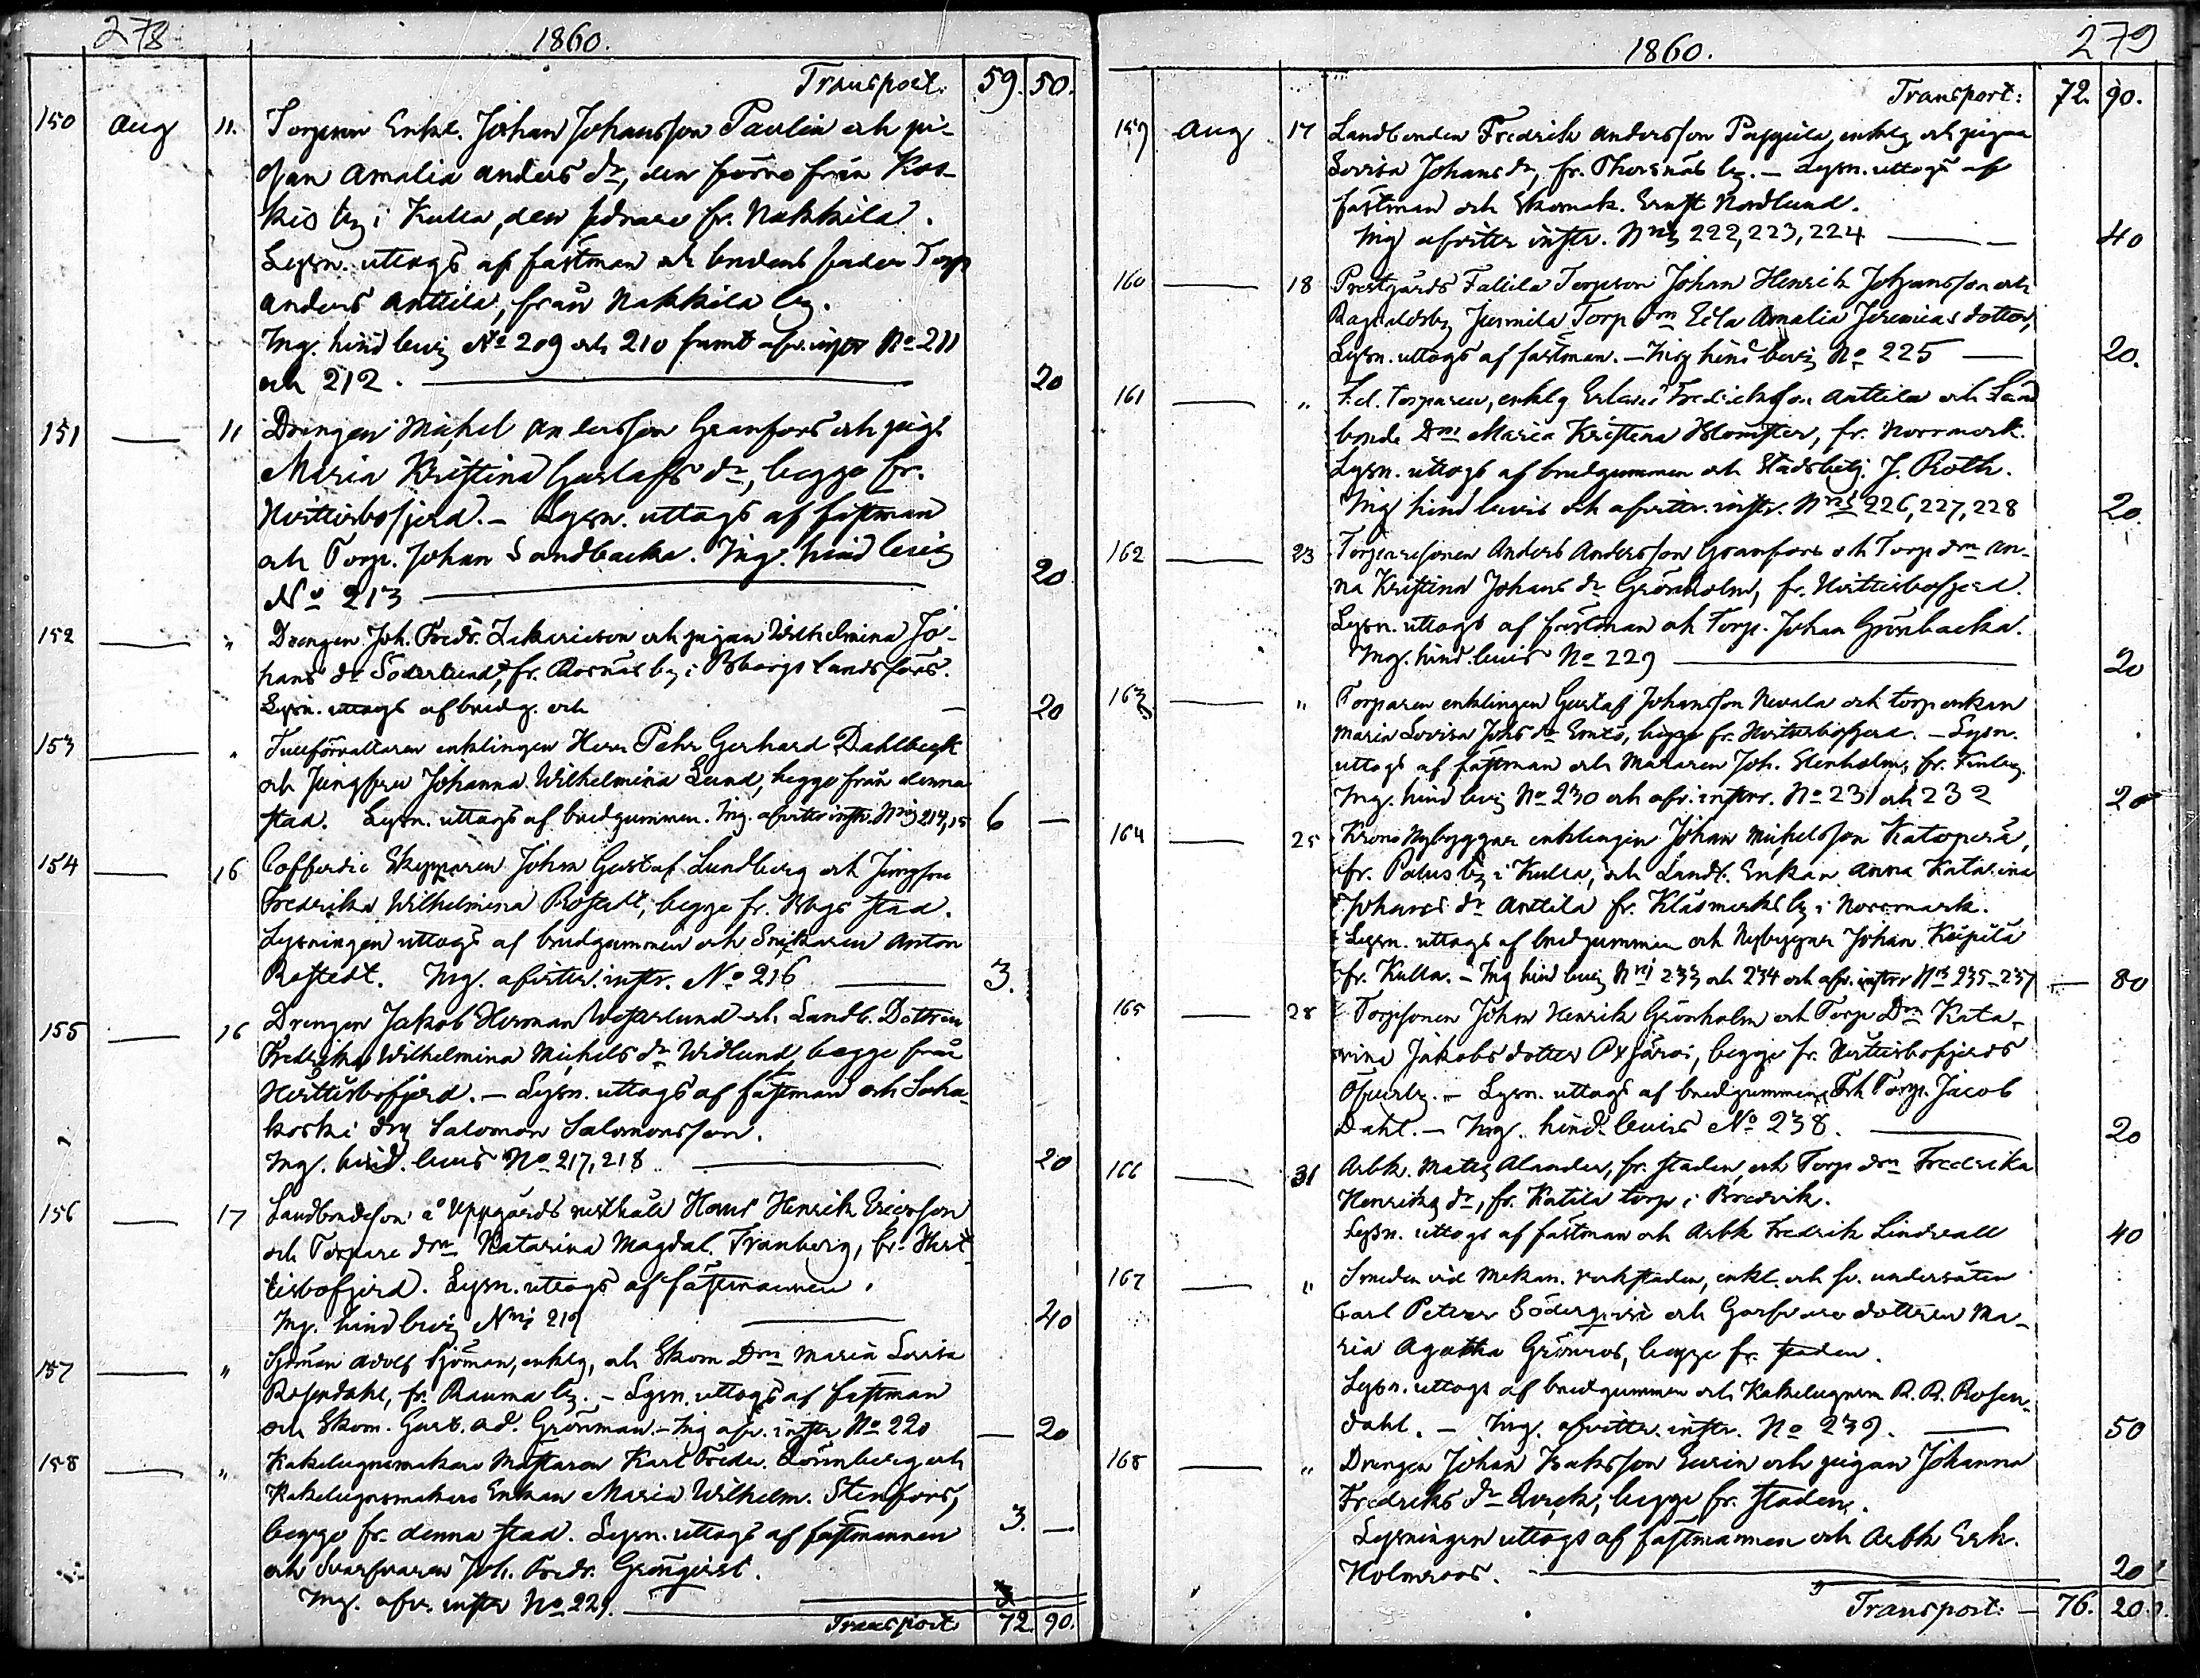 278
1860.
Transport. 59. 50.
150 Aug 11. Torparen Enkl. Johan Johansson Paulin och pi-
gan Amalia Anders dr, den förre från Kos-
kis by i Kulla, den sednare fr. Nakkila.
Lysn. uttogs af fästman och brudens fader Torp
Anders Anttila, från Nakkila by.
Ing. hind bevis No 209 och 210 samt afv. instr No 211
och 212. 20
151 11 Drengen Michel Andersson Granfors och pig.
Maria Kristina Gustafs dr, begge fr.
Hvittisbofjerd. – Lysn. uttogs af fästman
och Torp. Johan Sandbacka. Ing. hind bevis
No 213 20
152 " Drengen Joh. Fredr. Zakarieson och pigan Wilhelmina Jo-
hans dr Söderlund, fr. Rosnäs by i Bborgs Landsförs.
Lysn. uttogs af brudg. och — 20
153 " Tullförvaltaren enklingen Herr Pehr Gerhard Dahlbeck
och Jungfru Johanna Wilhelmina Lund, begge från denna
stad. Lysn. uttogs af brudgummen. Ing. afvittr. instr. Nris 214, 15 6 —
154 16 Cofferdie Skepparen Johan Gustaf Lundberg och Jungfru
Fredrika Wilhelmina Rostedt, begge fr. Bbgs stad.
Lysningen uttogs af brudgummen och Snikaren Anton
Rostedt. Ing. afvittr. instr. No 216 3.
155 16 Drengen Jakob Herman Westerlund och Landb. Dottren
Fredrika Wilhelmina Michels dr Widlund, begge från
Hvittisbofjerd. – Lysn. uttogs af fästman och Saha-
koski drg Salomon Salomonsson.
Ing. hind. bevis No 217, 218 20
156 17 Landbondeson å Uppgårds rusthåll Hans Henrik Ericsson
och Torpare drn Katarina Magdal. Tranberg, fr. Hvit
tisbofjerd. Lysn. uttogs af fästmannen.
Ing. hind bevis Nri 219 40
157 " Sjöman Adolf Sjöman, enklg, och Skom Drn Maria Lovisa
Rosendahl, fr. Rauma by. – Lysn. uttogs af fästman
och Skom. Gust. Ad. Grönman. – Ing afv. instr No 220 — 20
158 " Kakelugnsmakare Mästaren Karl Fredr. Lönnberg och
Kakelugnsmakare Enkan Maria Wilhelm. Stenfors,
begge fr. denna stad. Lysn. uttogs af fästmannen 3. —
och Svarfvaren Joh. Fredr. Grönqvist.
Ing. afv. instr No 221.
Transport 72. 90.
279
1860.
Transport: 72. 90.
159 Aug 17 Landbonden Fredrik Andersson enklg och pigan
Lovisa Johans dr, fr. Thorsnäs by. – Lysn. uttogs af
fästman och Skomak. Ernst Nordlund.
Ing afvittr instr. Nris 222, 223, 224 40
160 18 Prestgårds Fallila Torpson Johan Henrik Johansson och
Ragvaldsby Jusmila Torp drn Eda Amalia Jeremias dotter,
Lysn. uttogs af fästman. – Ing hind bevis No 225 20.
161 " F.d. Torparen, enklg Erland Fredriksson Anttila och Land
bonde Drn Maria Kristina Blomster, fr. Norrmark.
Lysn. uttogs af brudgummen och Stadsbetj. J. Roth.
Ing hind bevis och afvittr. instr. Nris 226, 227, 228 20.
162 23 Torparesonen Anders Andersson Granfors och Torp drn An-
na Kristina Johans dr Grönholm, fr. Hvittisbofjerd.
Lysn. uttogs af fästman och Torp. Johan Grönbacka.
Ing. hind. bevis No 229 20
163 " Torparen enklingen Gustaf Johansson Nevala och torp enkan
Maria Lovisa Johs dr, begge fr. Hvittisbofjerd. – Lysn.
uttogs af fästman och Muraren Joh. Stenholm, fr. Finby.
Ing. hind bevis No 230 och afv. instr. No 231 och 232 20
164 25 Krono Nybyggar enklingen Johan Michelsson
fr. Palus by i Kulla, och Landb. Enkan Anna Katarina
Johans dr Anttila fr. Kläsmarks by i Norrmark.
Lysn. uttogs af brudgummen och Nybyggar Johan Keipilä
fr. Kulla. – Ing hind bevis Nri 233 och 234 och afv. instrr Nris 235–237 — 80
165 28 Torpsonen Johan Henrik Grönholm och Torp Drn Kata-
rina Jakobs dotter Oxjärvi, begge fr. Hvittisbofjerds
Öfverby. – Lysn. uttogs af brudgummen och Torp. Jacob
Dahl. – Ing. hind. bevis No 238. 20
166 31 Arbk. Mats Alander, fr. staden, och Torp drn Fredrika
Henriks dr, fr. Katila torp i Bredvik.
Lysn. uttogs af fästman och Arbk Fredrik Lindvall 40
167 " Smeden vid Mekan. verkstaden, enkl. och sv. undersåten
Carl Petter Söderqvist och Garfvare dottren Ma-
ria Agatha Grönroos, begge fr. staden.
Lysn. uttogs af brudgummen och Kakelugnsm R. R. Rosen-
dahl. – Ing. afvittr. instr. No 239. 50
168 " Drengen Johan Isaksson Eurén och pigan Johanna
Fredriks dr Qvick, begge fr. staden.
Lysningen uttogs af fästmannen och Arbk Erk.
Holmroos. 20
Transport: – 76. 20.